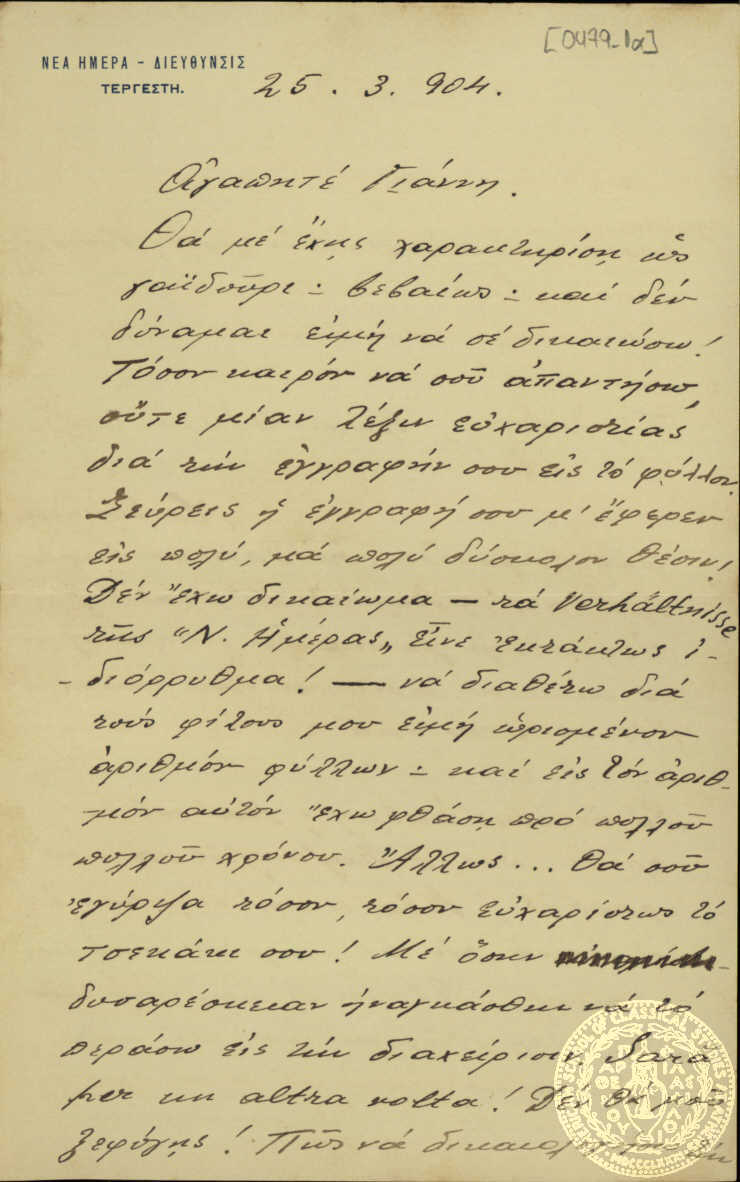 [0479-1α]
ΝΕΑ ΗΜΕΡΑ - ΔΙΕΥΘΥΝΣΙΣ
ΤΕΡΓΕΣΤΗ.
25. 3. 904.
Ἀγαπητέ Γιάννη.
Θά μέ ἔχῃς χαρακτηρίσῃ ὡς
γαϊδοῦρι - βεβαίως - καί δέν
δύναμαι εἰμή νά σέ δικαιώσω!
Τόσον καιρόν νά σοῦ ἀπαντήσω,
οὔτε μίαν λέξιν εὐχαριστίας
διά τήν ἐγγραφήν σου εἰς τό φύλλον.
Ξεύρεις ἡ ἐγγραφή σου μ' ἔφερεν
εἰς πολύ, μά πολύ δύσκολον θέσιν!
Δέν ἔχω δικαίωμα — τά Verhältnisse
τῆς "Ν. Ἡμέρας" εἶνε ἐκτάκτως ἰ-
-διόρρυθμα! — νά διαθέτω διά
τούς φίλους μου εἰμή ὡρισμένον
ἀριθμόν φύλλων - καί εἰς τόν ἀριθ-
-μόν αὐτόν ἔχω φθάσῃ πρό πολλοῦ
πολλοῦ χρόνου. Ἄλλως... Θά σοῦ
ἐγύριζα τόσον, τόσον εὐχαρίστως τό
τσεκάκι σου! Μέ ὅσην
δυσαρέσκειαν ἠναγκάσθην νά τό
περάσω εἰς τήν διαχείρισιν. Sarà
per un altra volta! Δέν θά μοῦ
ξεφύγῃς! Πῶς νά